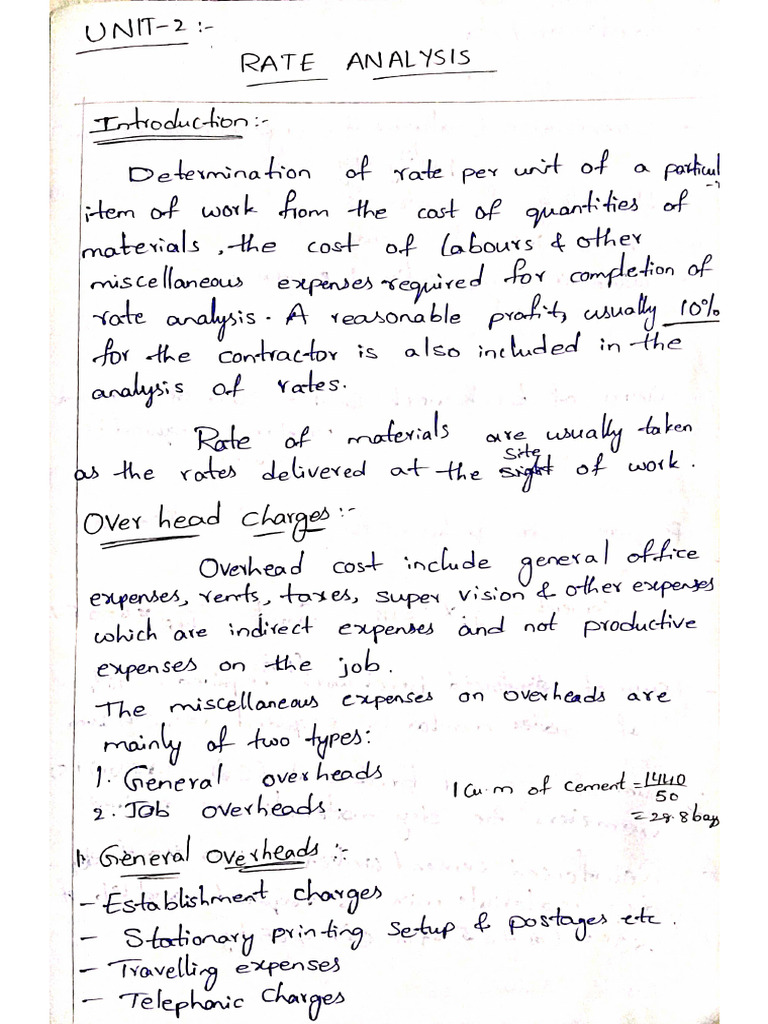 UNIT-2 :-
RATE ANALYSIS
Introduction:-
Determination of rate per unit of a particul
item of work from the cost of quantities of
materials, the cost of labours & other
miscellaneous expenses required for completion of
rate analysis. A reasonable profit, usually 10%
for the contractor is also included in the
analysis of rates.
Rate of materials are usually taken
as the rates delivered at the site of work.
Over head charges:-
Overhead cost include general office
expenses, rents, taxes, super vision & other expenses
which are indirect expenses and not productive
expenses on the job.
The miscellaneous expenses on overheads are
mainly of two types:
1. General overheads
2. Job overheads.
1 Cu.m of cement = 1440/50
= 28.8 bags
1. General overheads:-
- Establishment charges
- Stationary printing setup & postages etc.
- Travelling expenses
- Telephonic charges